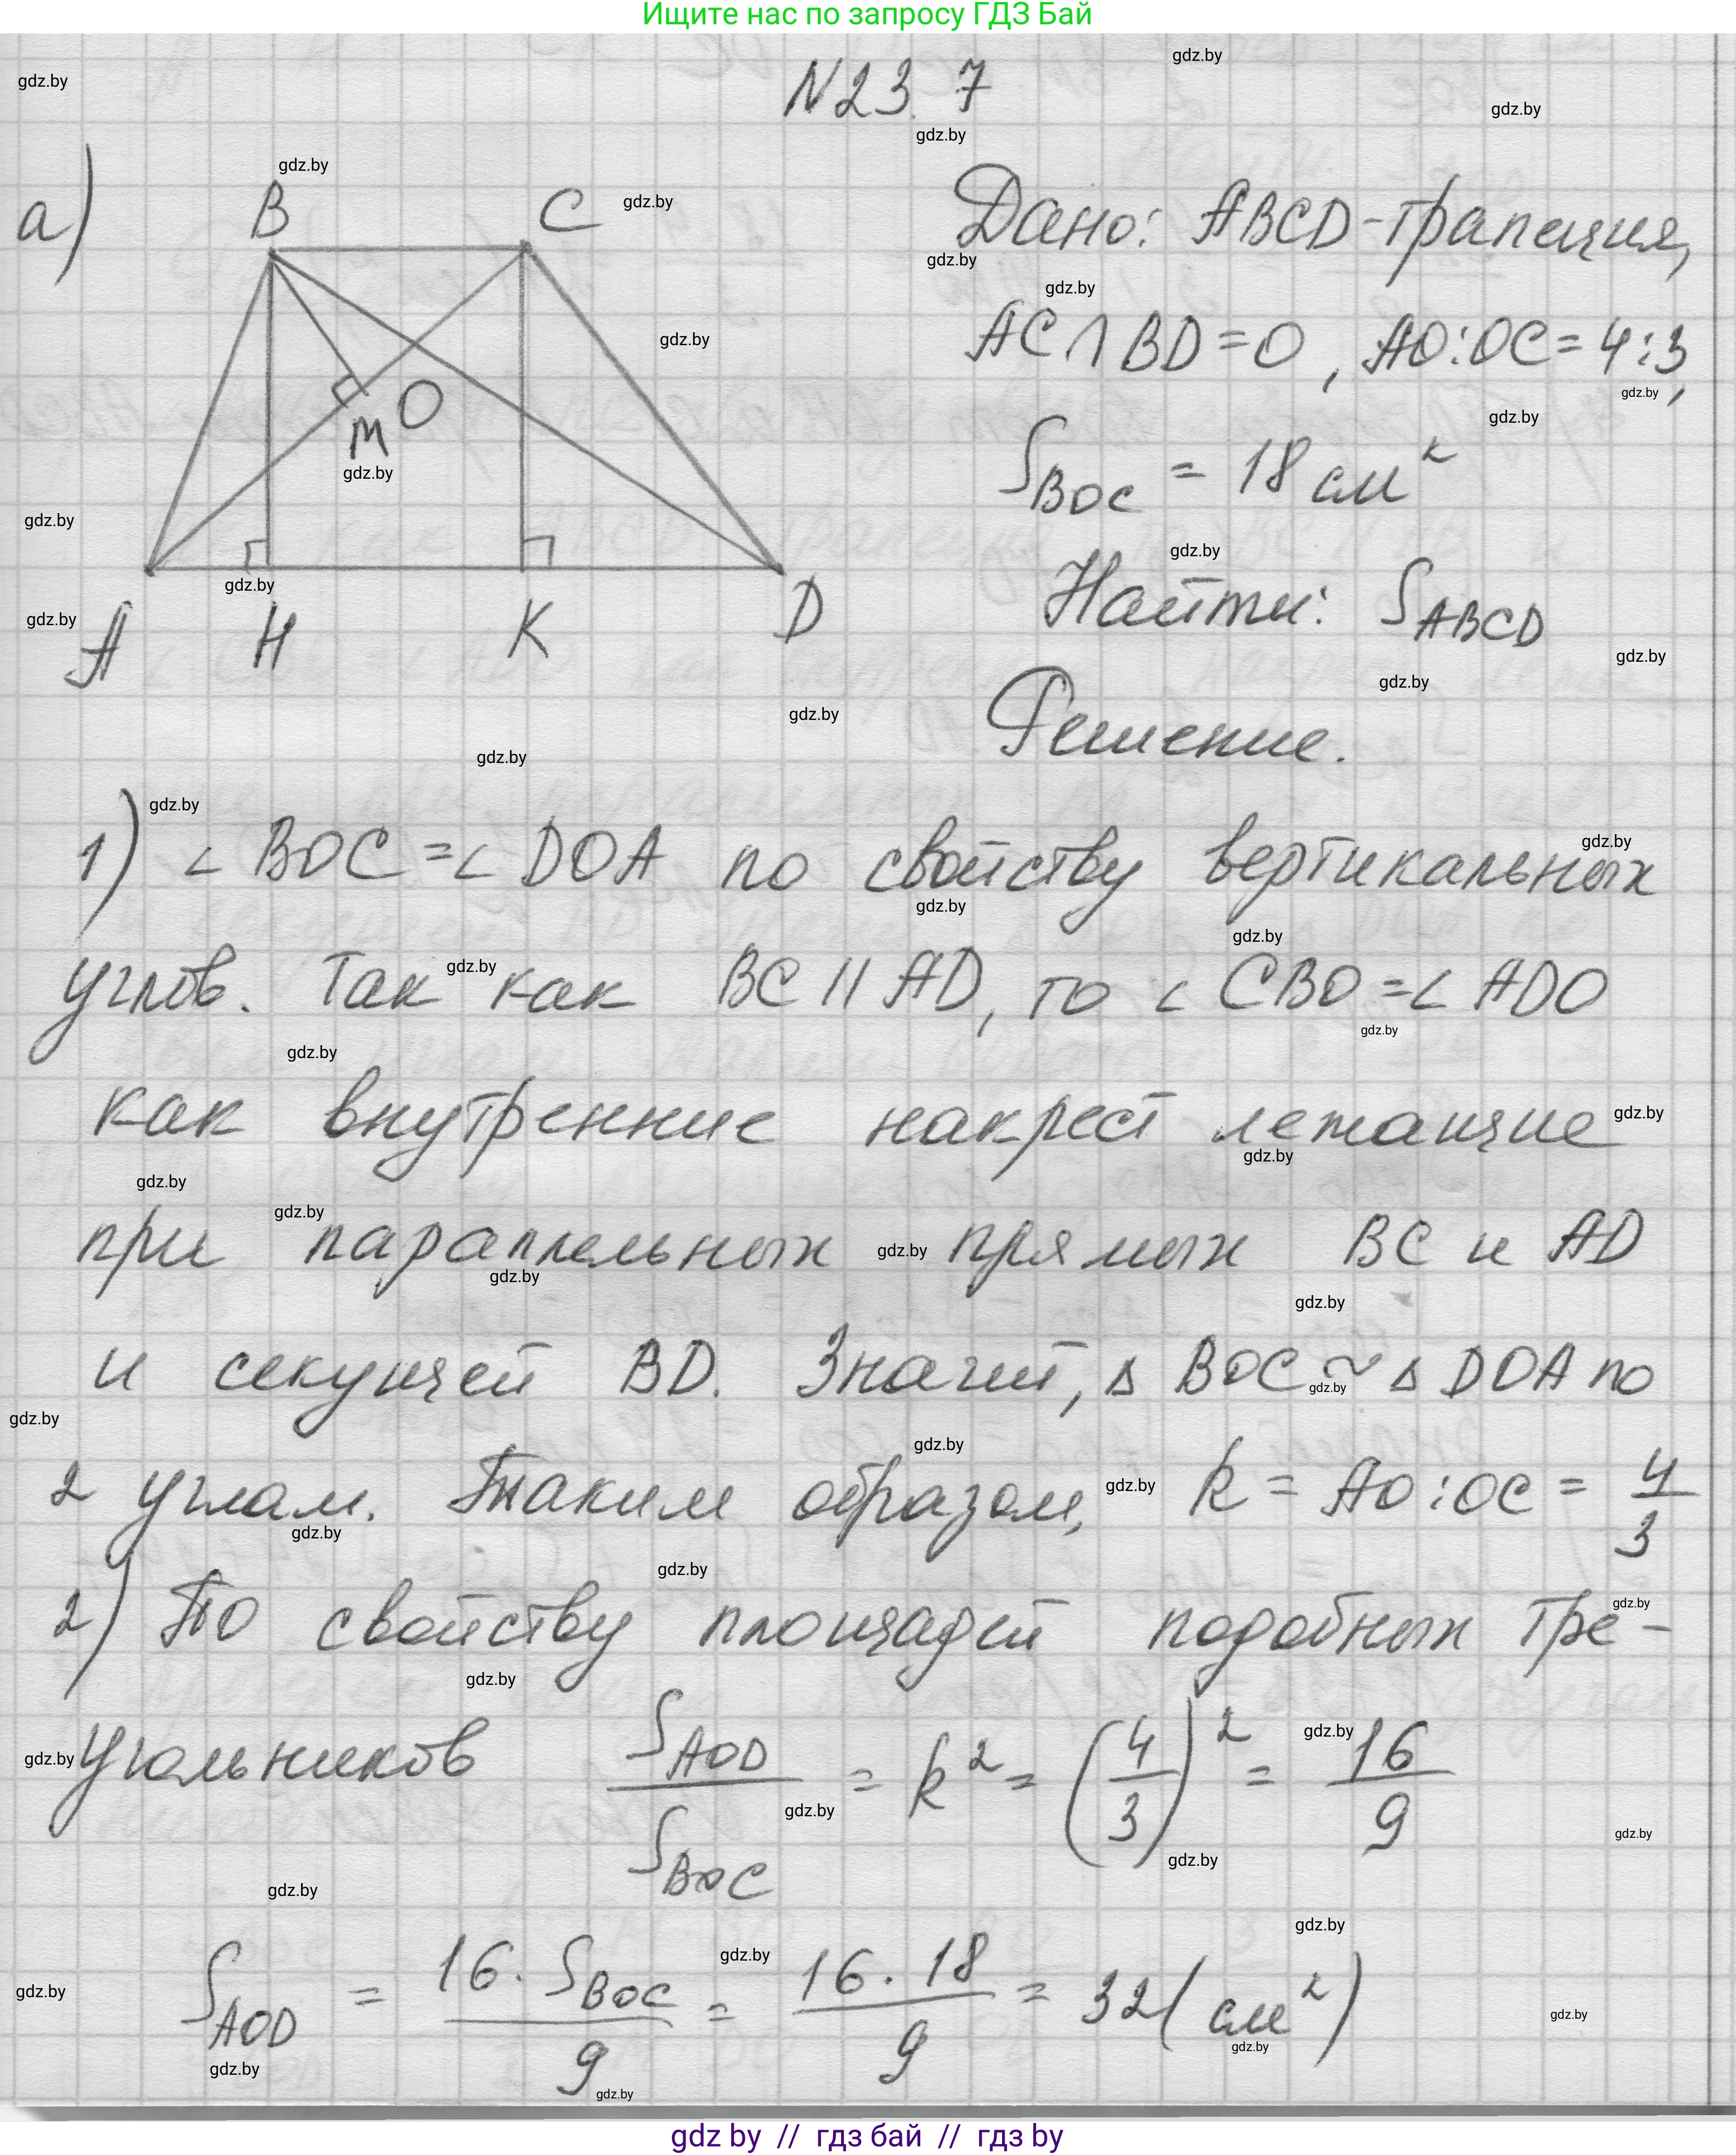 Ищите нас по запросу ГДЗ Бай
N23.7
а)
B
C
M
O
A
H
K
D
Дано: ABCD-трапеция,
AC∩BD=O, AO:OC=4:3,
S_BOC = 18 см²
Найти: S_ABCD
Решение.
1) ∠BOC=∠DOA по свойству вертикальных
углов. Так как BC||AD, то ∠CBO=∠ADO
как внутренние накрест лежащие
при параллельных прямых BC и AD
и секущей BD. Значит, ΔBOC~ΔDOA по
2 углам. Таким образом, k = AO:OC = 4/3
2) По свойству площадей подобных тре-
угольников S_AOD/S_BOC = k² = (4/3)² = 16/9
S_AOD = 16·S_BOC/9 = 16·18/9 = 32(см²)
gdz by // гдз бай // гдз by